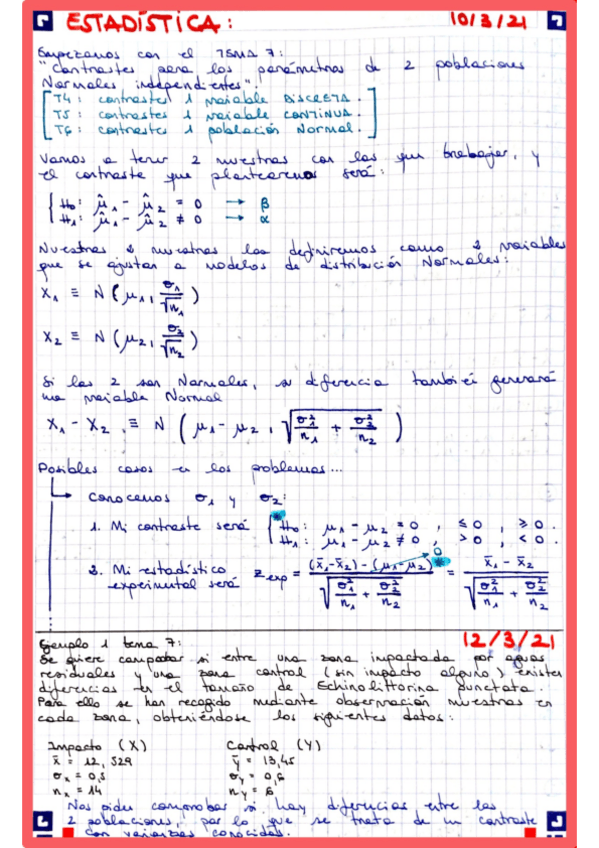 ESTADÍSTICA: 10/3/21
Empezamos con el TEMA 7:
"Contrastes para los parámetros de 2 poblaciones
Normales independientes".
T4: contrastes 1 variable DISCRETA.
T5: contrastes 1 variable CONTINUA.
T6: contrastes 1 población Normal.
Vamos a tener 2 muestras con las que trabajar, y
el contraste que plantearemos será:
H₀: μ̂₁ - μ̂₂ = 0 → β
H₁: μ̂₁ - μ̂₂ ≠ 0 → α
Nuestras 2 muestras las definiremos como 2 variables
que se ajustan a modelos de distribución Normales:
X₁ ≡ N(μ₁, σ₁/√n₁)
X₂ ≡ N(μ₂, σ₂/√n₂)
Si las 2 son Normales, su diferencia también generará
una variable Normal
X₁ - X₂ ≡ N(μ₁ - μ₂, √(σ₁²/n₁ + σ₂²/n₂))
Posibles casos en los problemas...
Conocemos σ₁ y σ₂:
1. Mi contraste será * H₀: μ₁ - μ₂ = 0, ≤ 0, ≥ 0.
H₁: μ₁ - μ₂ ≠ 0, > 0, < 0.
2. Mi estadístico experimental será Z exp = ((x̄₁ - x̄₂) - (μ₁ - μ₂) → 0 *) / √(σ₁²/n₁ + σ₂²/n₂) = (x̄₁ - x̄₂) / √(σ₁²/n₁ + σ₂²/n₂)
Ejemplo 1 tema 7: 12/3/21
Se quiere comprobar si entre una zona impactada por aguas
residuales y una zona control (sin impacto alguno) existen
diferencias en el tamaño de Echinolittorina punctata.
Para ello se han recogido mediante observación muestras en
cada zona, obteniéndose los siguientes datos:
Impacto (X) Control (Y)
x̄ = 12,529 ȳ = 13,45
σx = 0,5 σy = 0,6
nx = 14 ny = 8
Nos piden comprobar si hay diferencias entre las
2 poblaciones, por lo que se trata de un contraste
con varianzas conocidas.